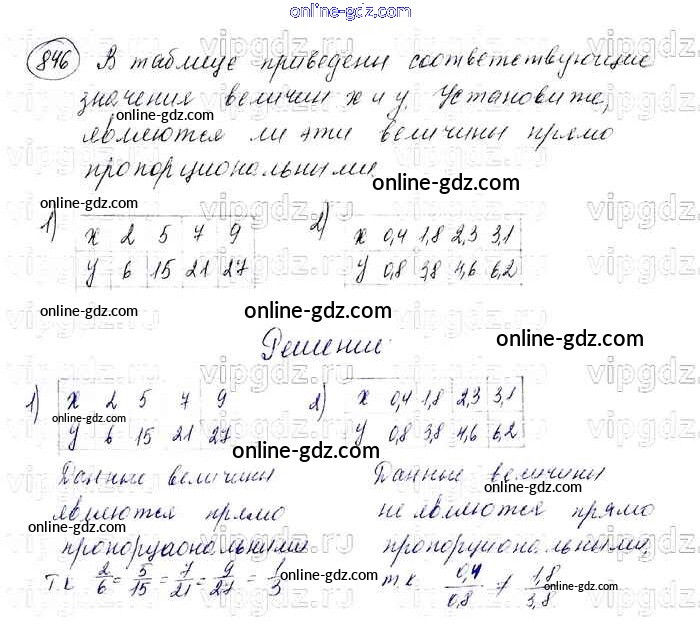 online-gdz.com
846 В таблице приведены соответствующие
online-gdz.com
значения величин x и y. Установите,
являются ли эти величины прямо
пропорциональными.
online-gdz.com
online-gdz.com
1) x 2 5 7 9
y 6 15 21 27
2) x 0,4 1,8 2,3 3,1
y 0,8 3,8 4,6 6,2
online-gdz.com
online-gdz.com
online-gdz.com
online-gdz.com
Решение
1) x 2 5 7 9
y 6 15 21 27
2) x 0,4 1,8 2,3 3,1
y 0,8 3,8 4,6 6,2
online-gdz.com
online-gdz.com
Данные величины
являются прямо
пропорцаональными
т.к 2/6 = 5/15 = 7/21 = 9/27 = 1/3
Данные величины
не являются прямо
пропорциональными,
т.к. 0,4/0,8 ≠ 1,8/3,8
online-gdz.com
online-gdz.com
online-gdz.com
online-gdz.com
vipgdz.ru